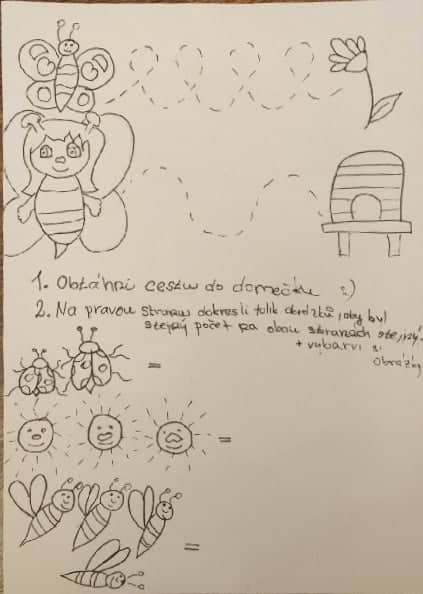 1. Obtáhni cestu do domečku :)
2. Na pravou stranu dokresli tolik obrázků, aby byl
stejný počet na obou stranách stejný.
+ vybarvi si
obrázky
=
=
=